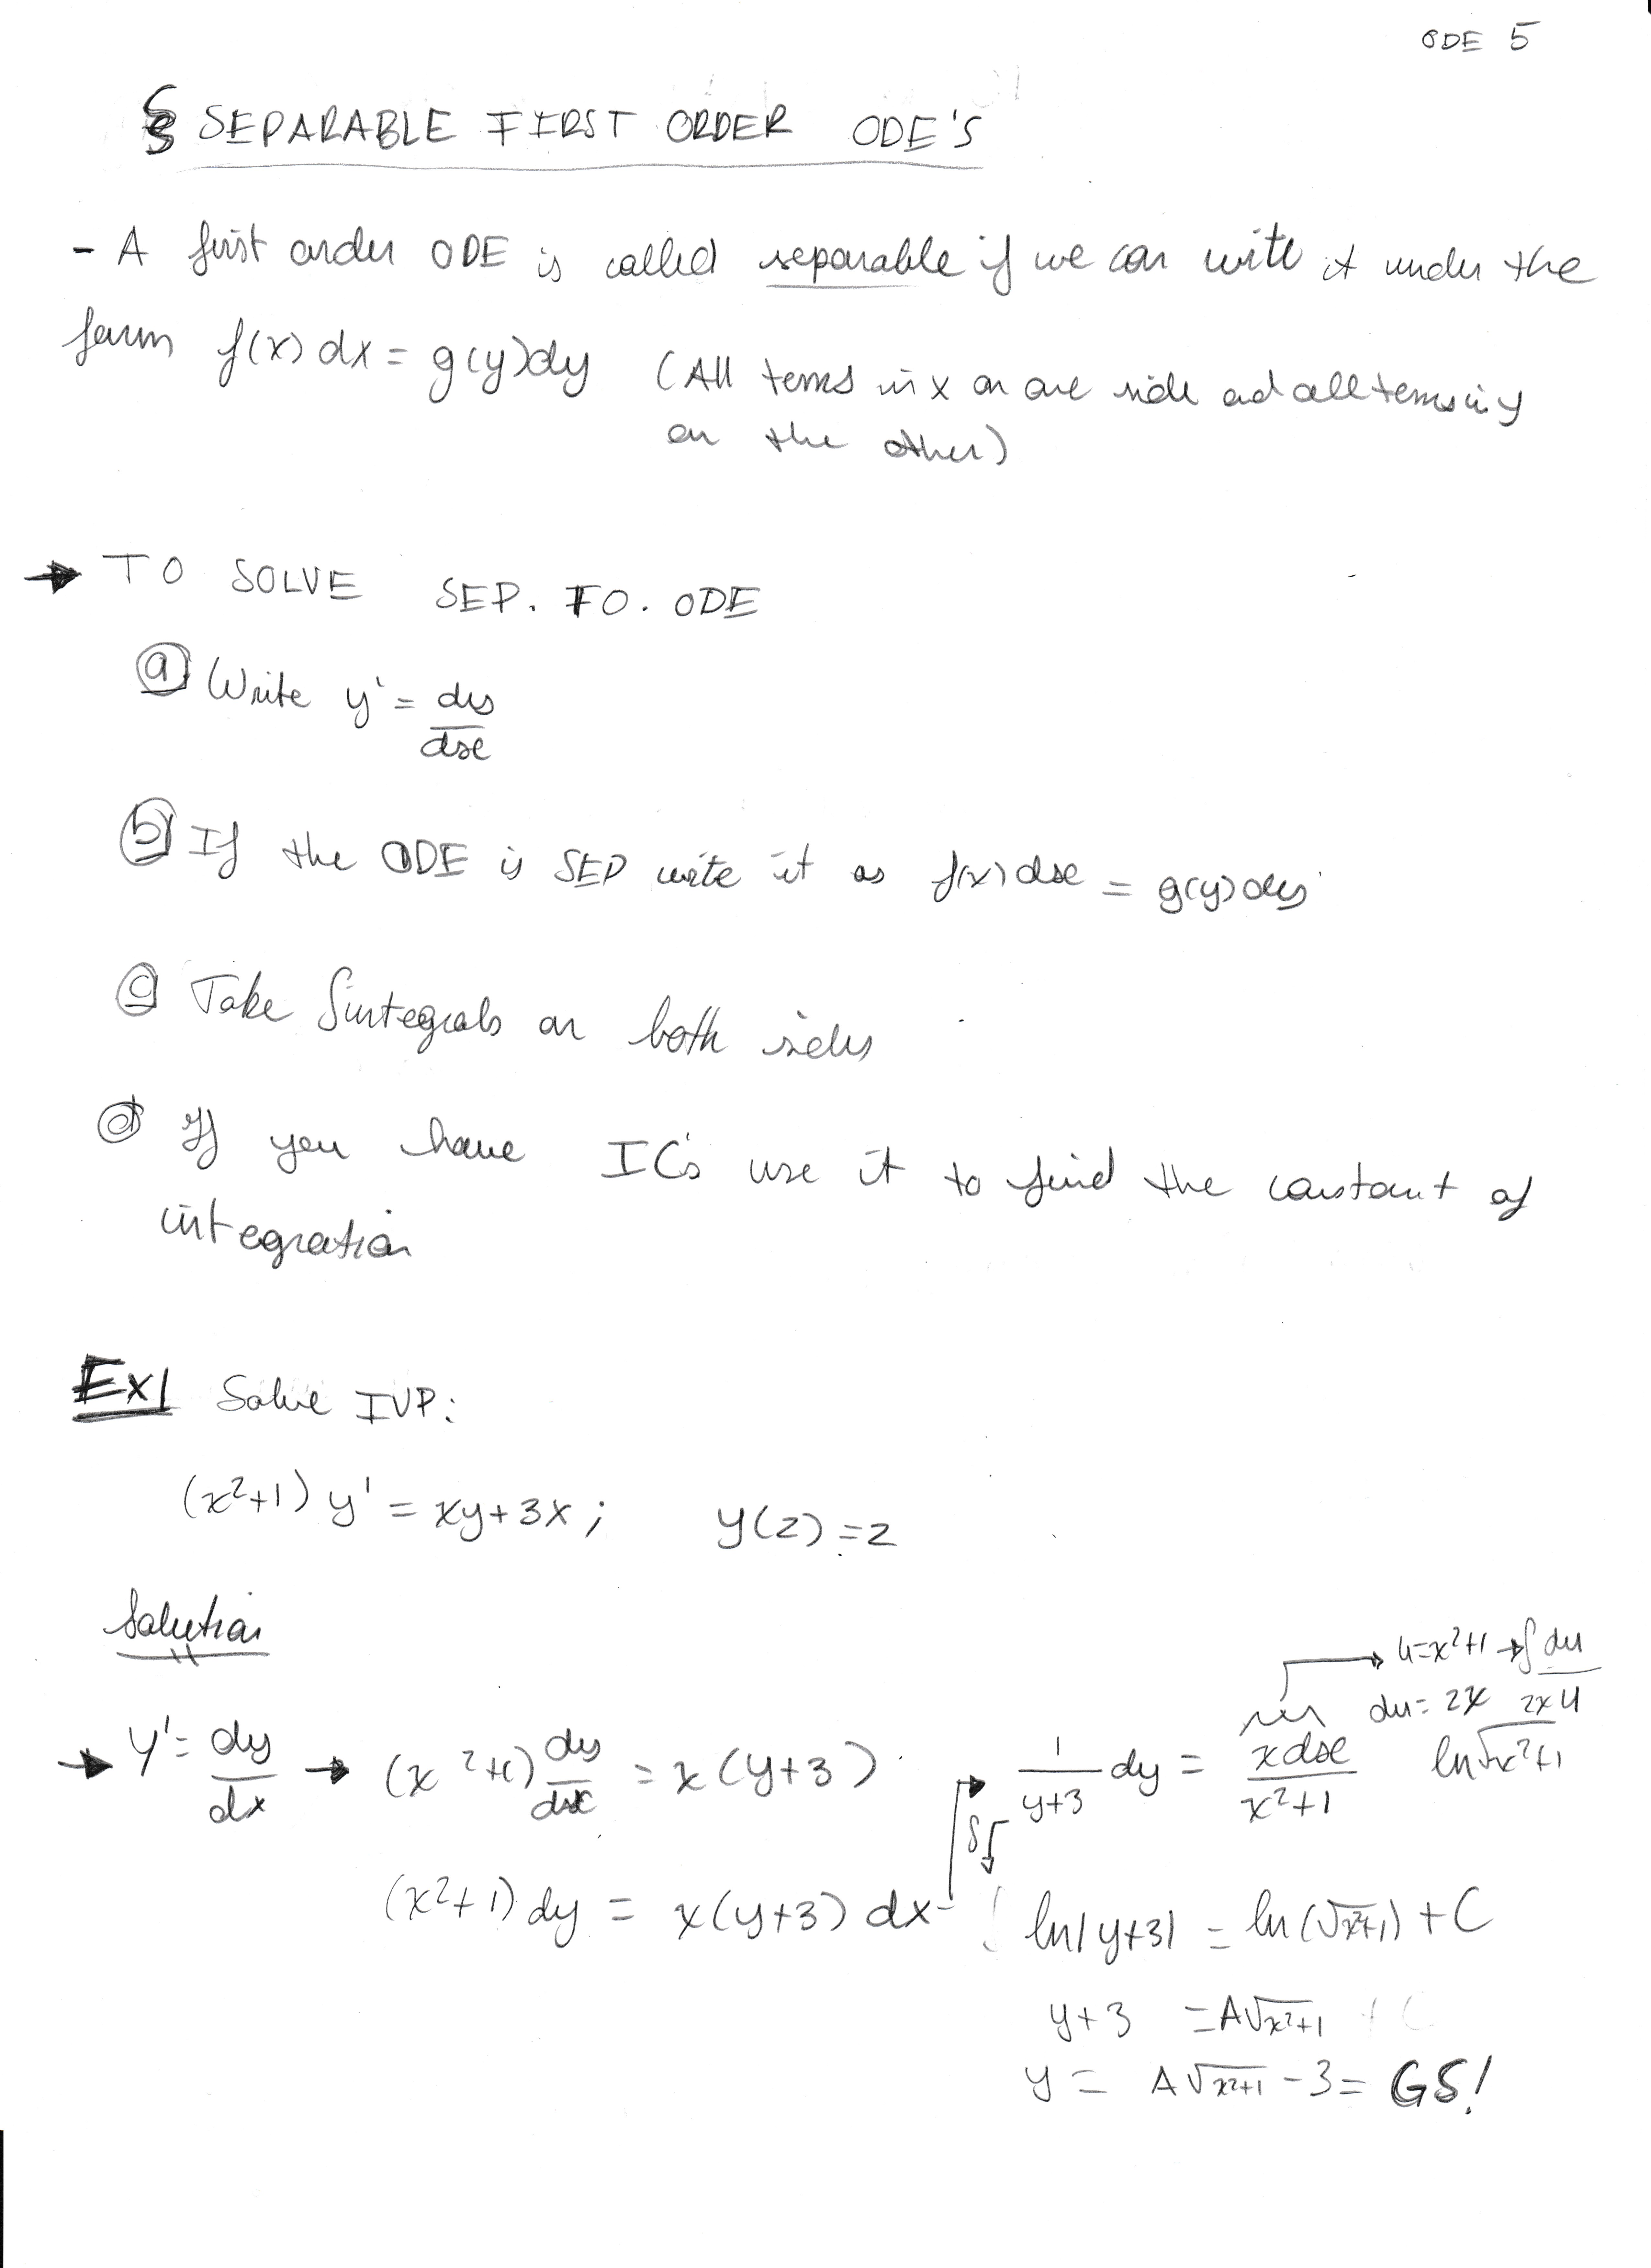 ODE 5
§ SEPARABLE FIRST ORDER ODE'S
- A first order ODE is called separable if we can write it under the
form f(x) dx = g(y)dy (All terms in x on one side and all terms in y
on the other)
→ TO SOLVE SEP. FO. ODE
ⓐ Write y' = dy/dx
ⓑ If the ODE is SEP write it as f(x) dx = g(y) dy
ⓒ Take ∫integrals on both sides
ⓓ If you have IC's use it to find the constant of
integration
Ex1 Solve IVP:
(x²+1) y' = xy+3x ; y(2) = 2
Solution
→ y' = dy/dx → (x²+1) dy/dx = x(y+3)
(x²+1) dy = x(y+3) dx
→ 1/(y+3) dy = x dx/(x²+1)
→ u=x²+1 → ∫ du/2×u
du = 2x
ln √x²+1
∫
ln|y+3| = ln(√x²+1) + C
y+3 = A√x²+1
y = A√x²+1 - 3 = GS!